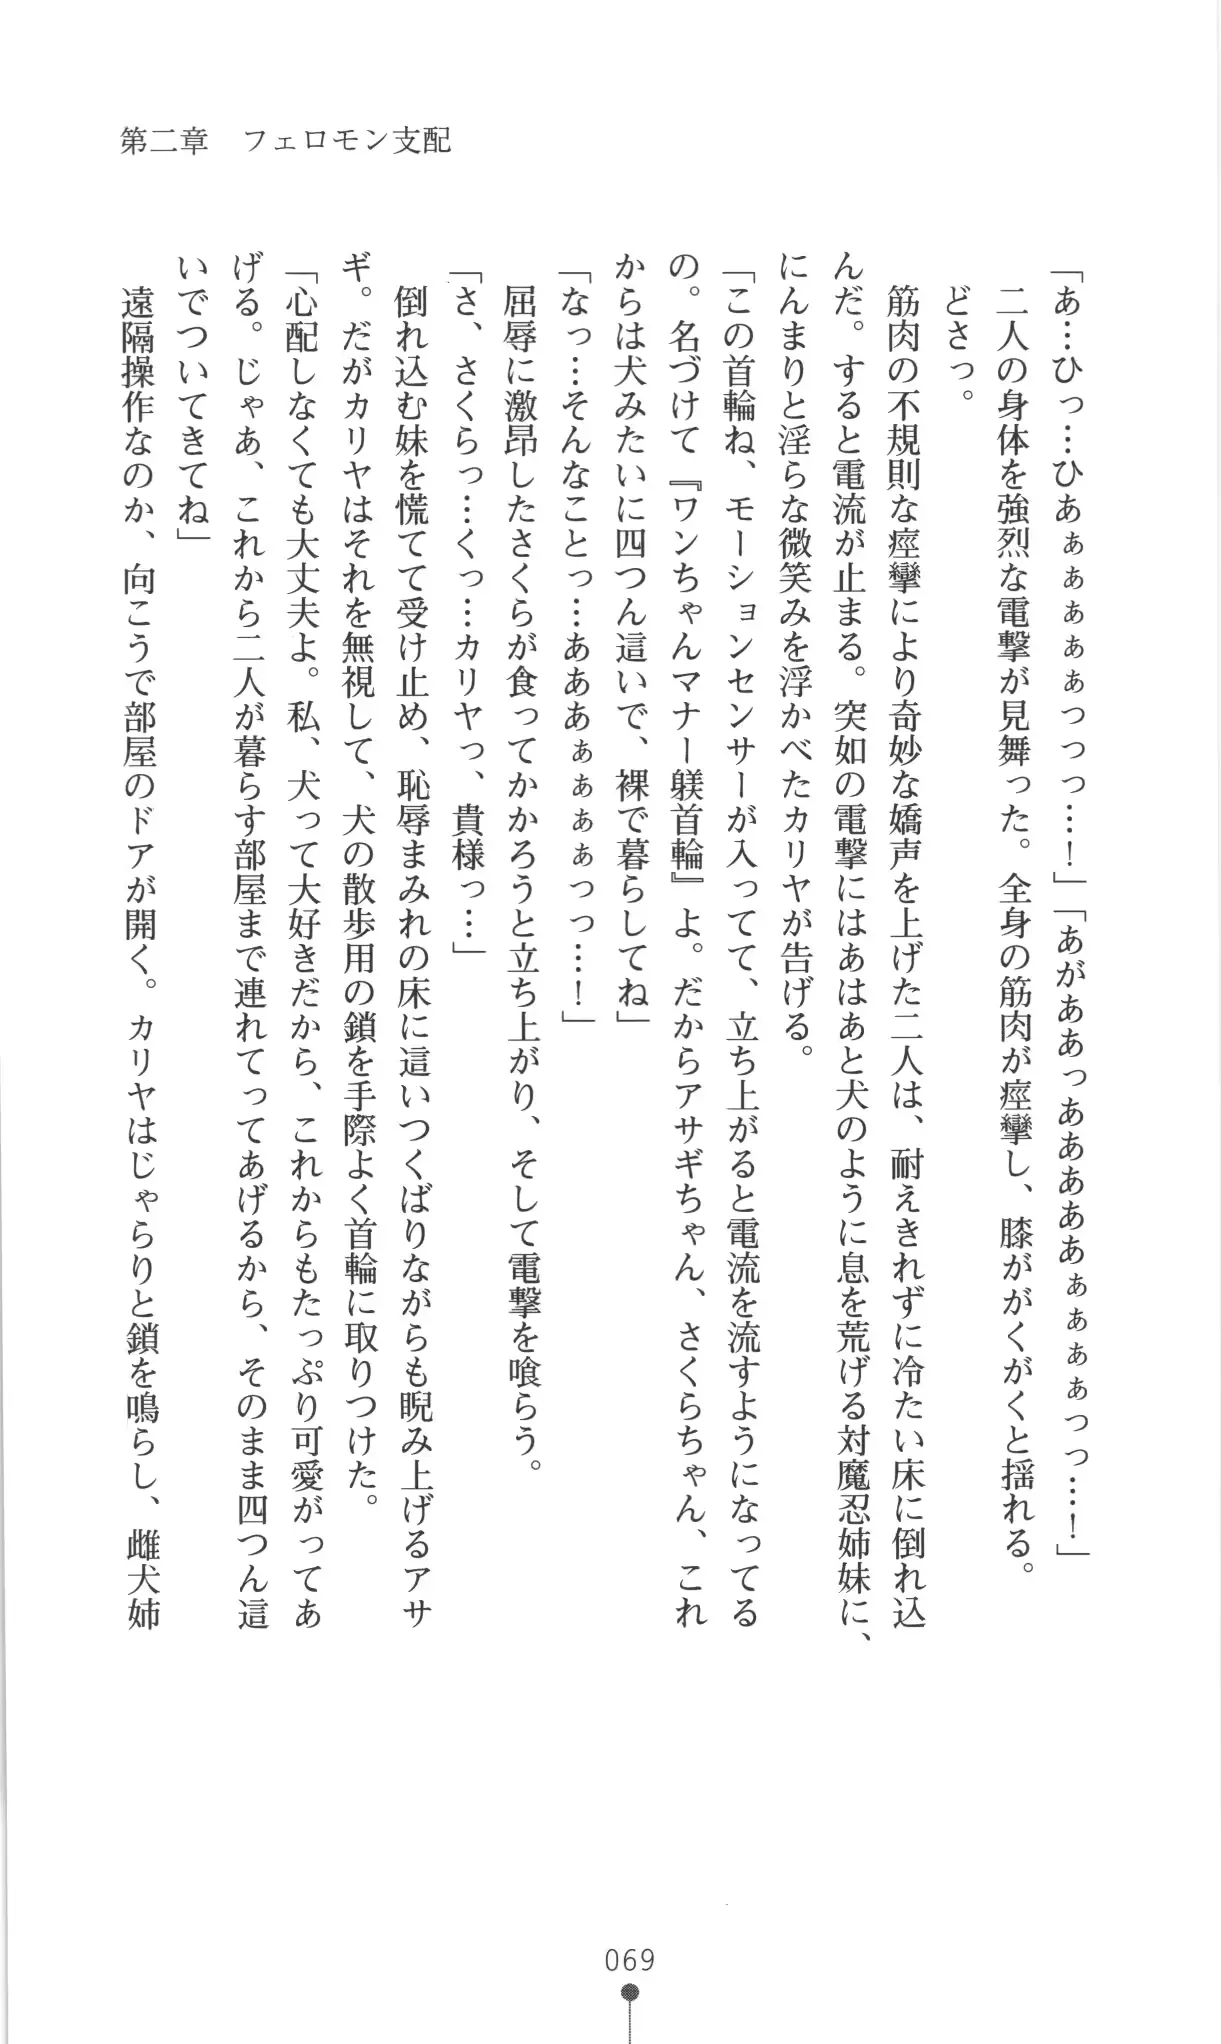 第二章　フェロモン支配
「あ…ひっ…ひあぁぁぁぁっっっ…！」「あがああっああああああぁぁぁぁっっ…！」
　二人の身体を強烈な電撃が見舞った。全身の筋肉が痙攣し、膝ががくがくと揺れる。
　どさっ。
　筋肉の不規則な痙攣により奇妙な嬌声を上げた二人は、耐えきれずに冷たい床に倒れ込
んだ。すると電流が止まる。突如の電撃にはあはあと犬のように息を荒げる対魔忍姉妹に、
にんまりと淫らな微笑みを浮かべたカリヤが告げる。
「この首輪ね、モーションセンサーが入ってて、立ち上がると電流を流すようになってる
の。名づけて『ワンちゃんマナー躾首輪』よ。だからアサギちゃん、さくらちゃん、これ
からは犬みたいに四つん這いで、裸で暮らしてね」
「なっ…そんなことっ…あああぁぁぁぁっっ…！」
　屈辱に激昂したさくらが食ってかかろうと立ち上がり、そして電撃を喰らう。
「さ、さくらっ…くっ…カリヤっ、貴様っ…」
　倒れ込む妹を慌てて受け止め、恥辱まみれの床に這いつくばりながらも睨み上げるアサ
ギ。だがカリヤはそれを無視して、犬の散歩用の鎖を手際よく首輪に取りつけた。
「心配しなくても大丈夫よ。私、犬って大好きだから、これからもたっぷり可愛がってあ
げる。じゃあ、これから二人が暮らす部屋まで連れてってあげるから、そのまま四つん這
いでついてきてね」
　遠隔操作なのか、向こうで部屋のドアが開く。カリヤはじゃらりと鎖を鳴らし、雌犬姉
069